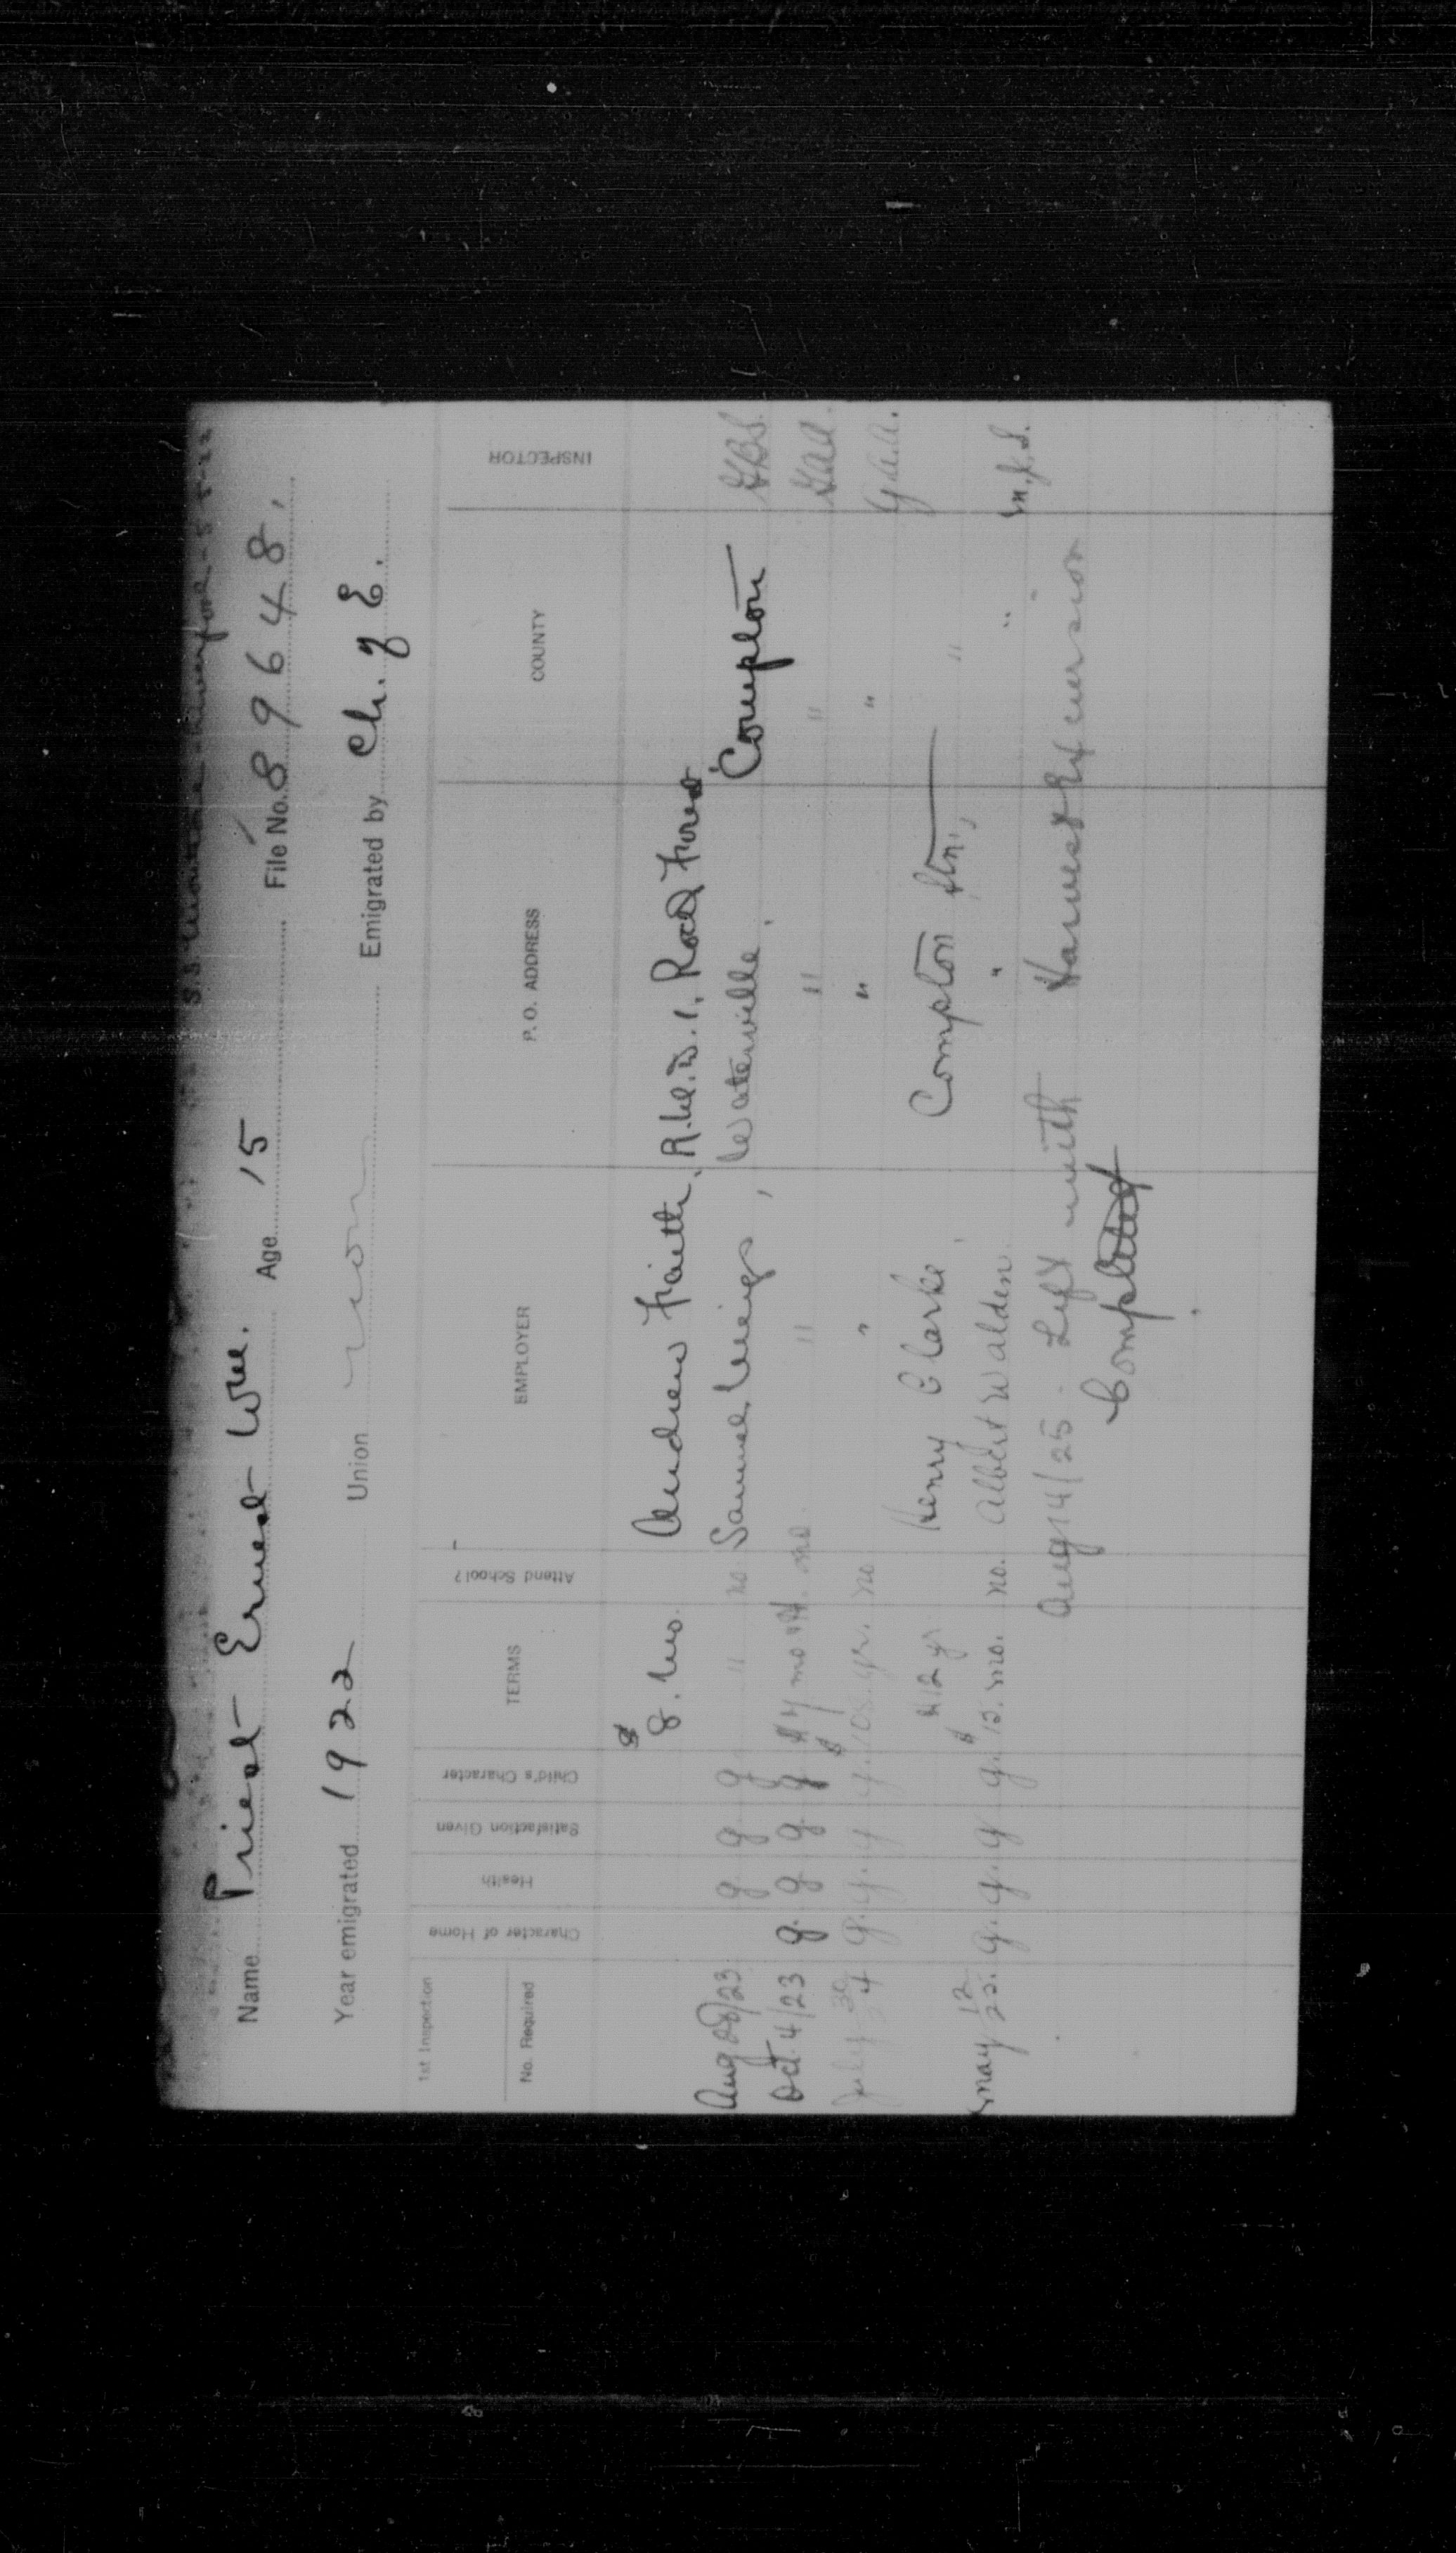 S.S.
Name Priest Ernest Wm. Age 15 File No. 89648.
Year emigrated 1922 Union non Emigrated by Ch. of E.
1st Inspection
No. Required Character of Home Health Satisfaction Given Child's Character TERMS Attend School? EMPLOYER P. O. ADDRESS COUNTY INSPECTOR
$ 8. mo. Andrew R.M.D. 1, Rock Forest
Aug 28/23 g g g " no Samuel , Waterville, Compton
Oct. 4/23 g. g g g $ 7 mo no " " "
July 30 24 g. g. g g. $ 108. yr. no " " " G.A.A.
$12 yr Henry Clarke, Compton Stn., "
May 12 25. g. g. g g. $ 15. mo. no. Albert Walden. " " M.J.S.
Aug 14/25. Left with Harvest Excursion
Completed